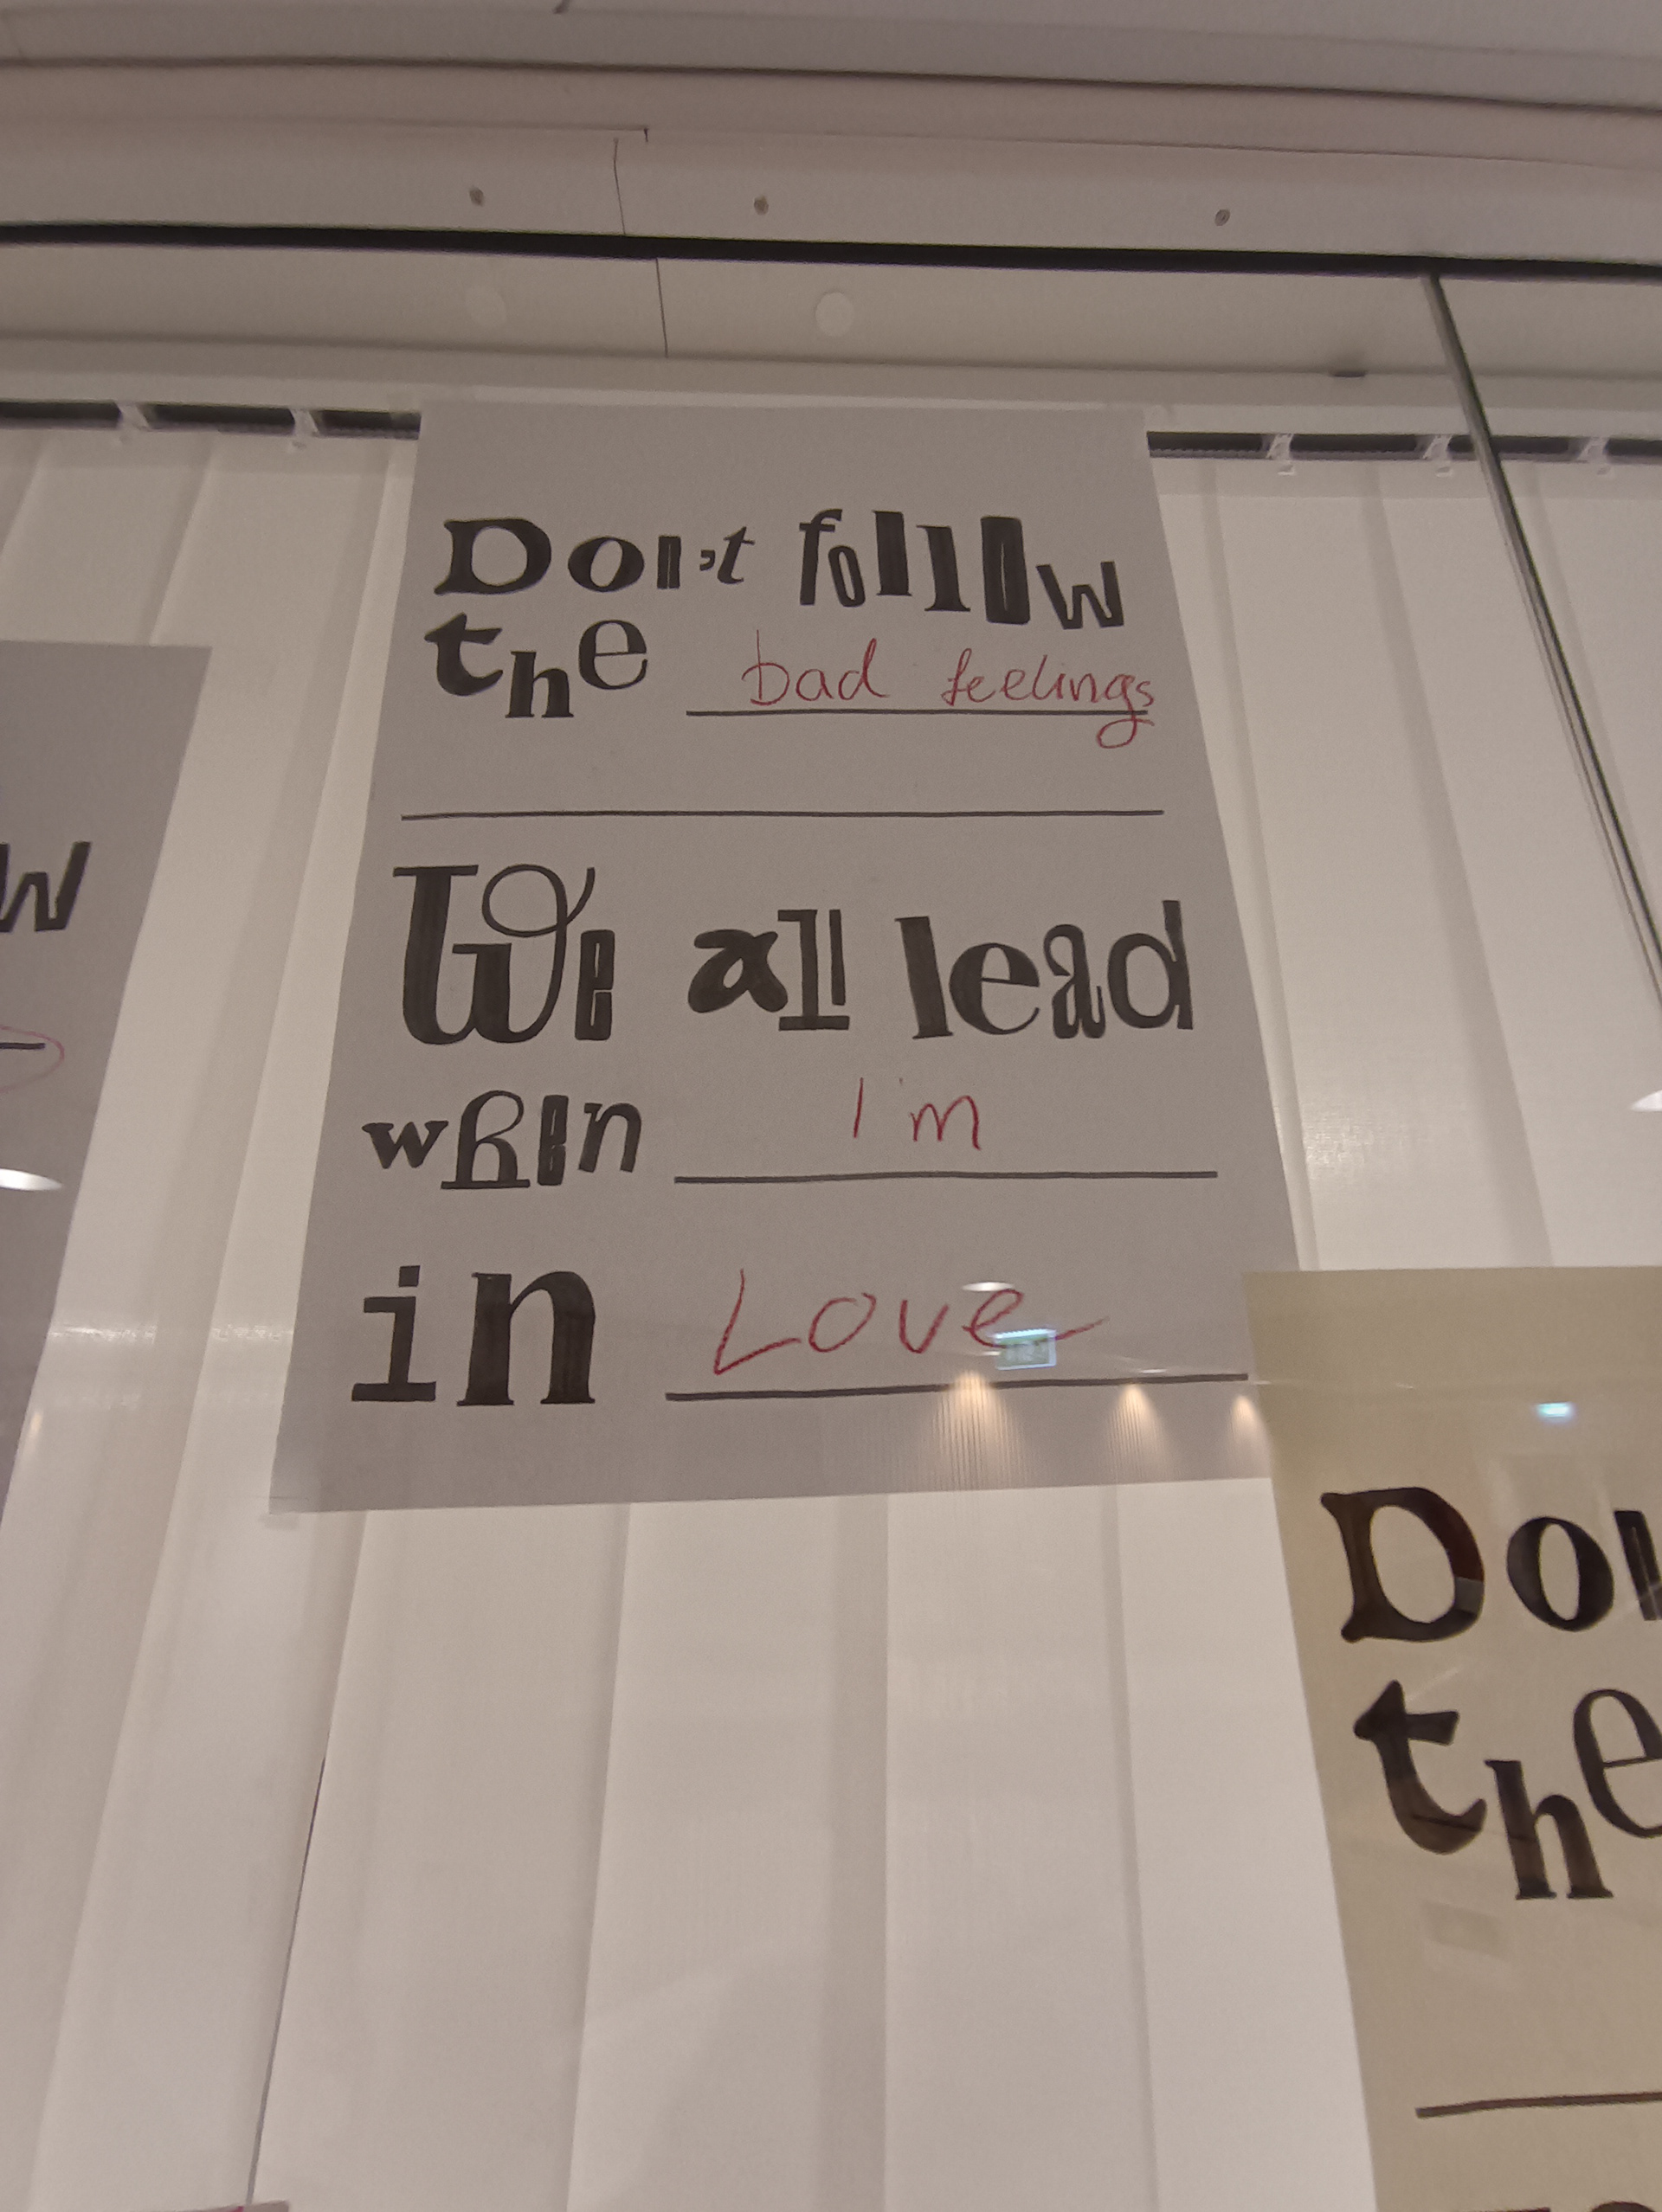 Don't follow
the bad feelings
We all lead
when I'm
in Love
W
Don
the